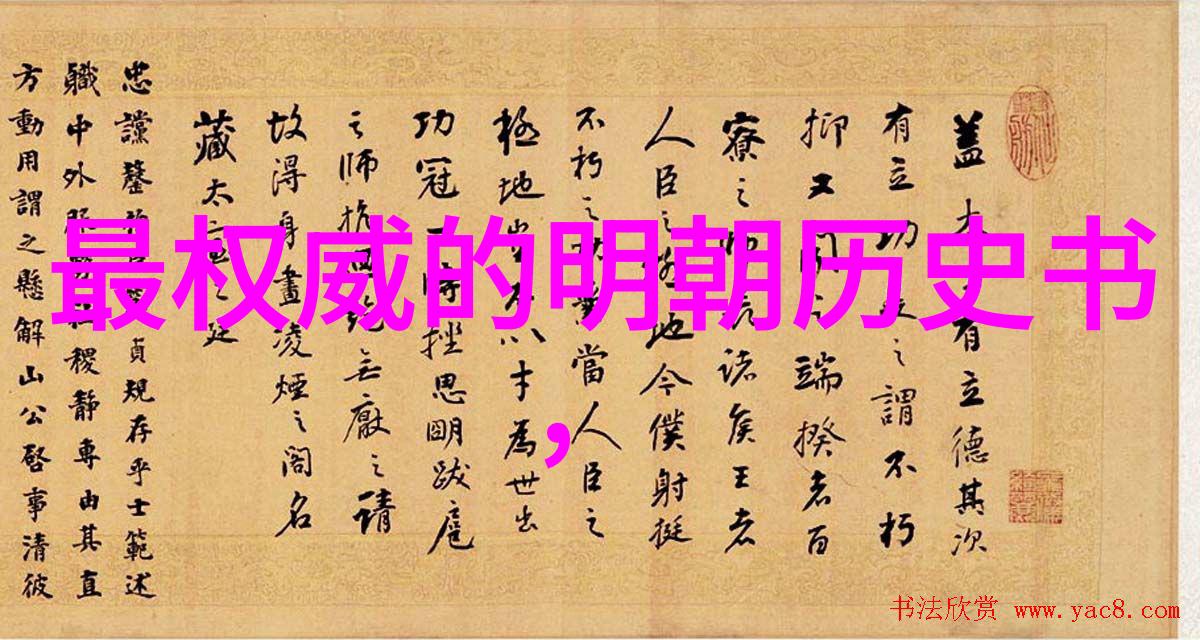 最权威的明朝历史书
，
盖太有立德其次
有立功之謂不朽
抑又聞之端揆者百
寮之師長諸侯王者
人臣之極地今僕射挺
不朽之當人臣之
極地豈不以才為世出
功冠一時挫思明跋扈
之師抗無厭之請
故得身畫凌煙之閣名
藏太室之廷
忠讜罄貞規存乎士範述
職中外稷靜專由其直
方動用謂之懸解山公啓事清彼
书法欣赏 www.yac8.com